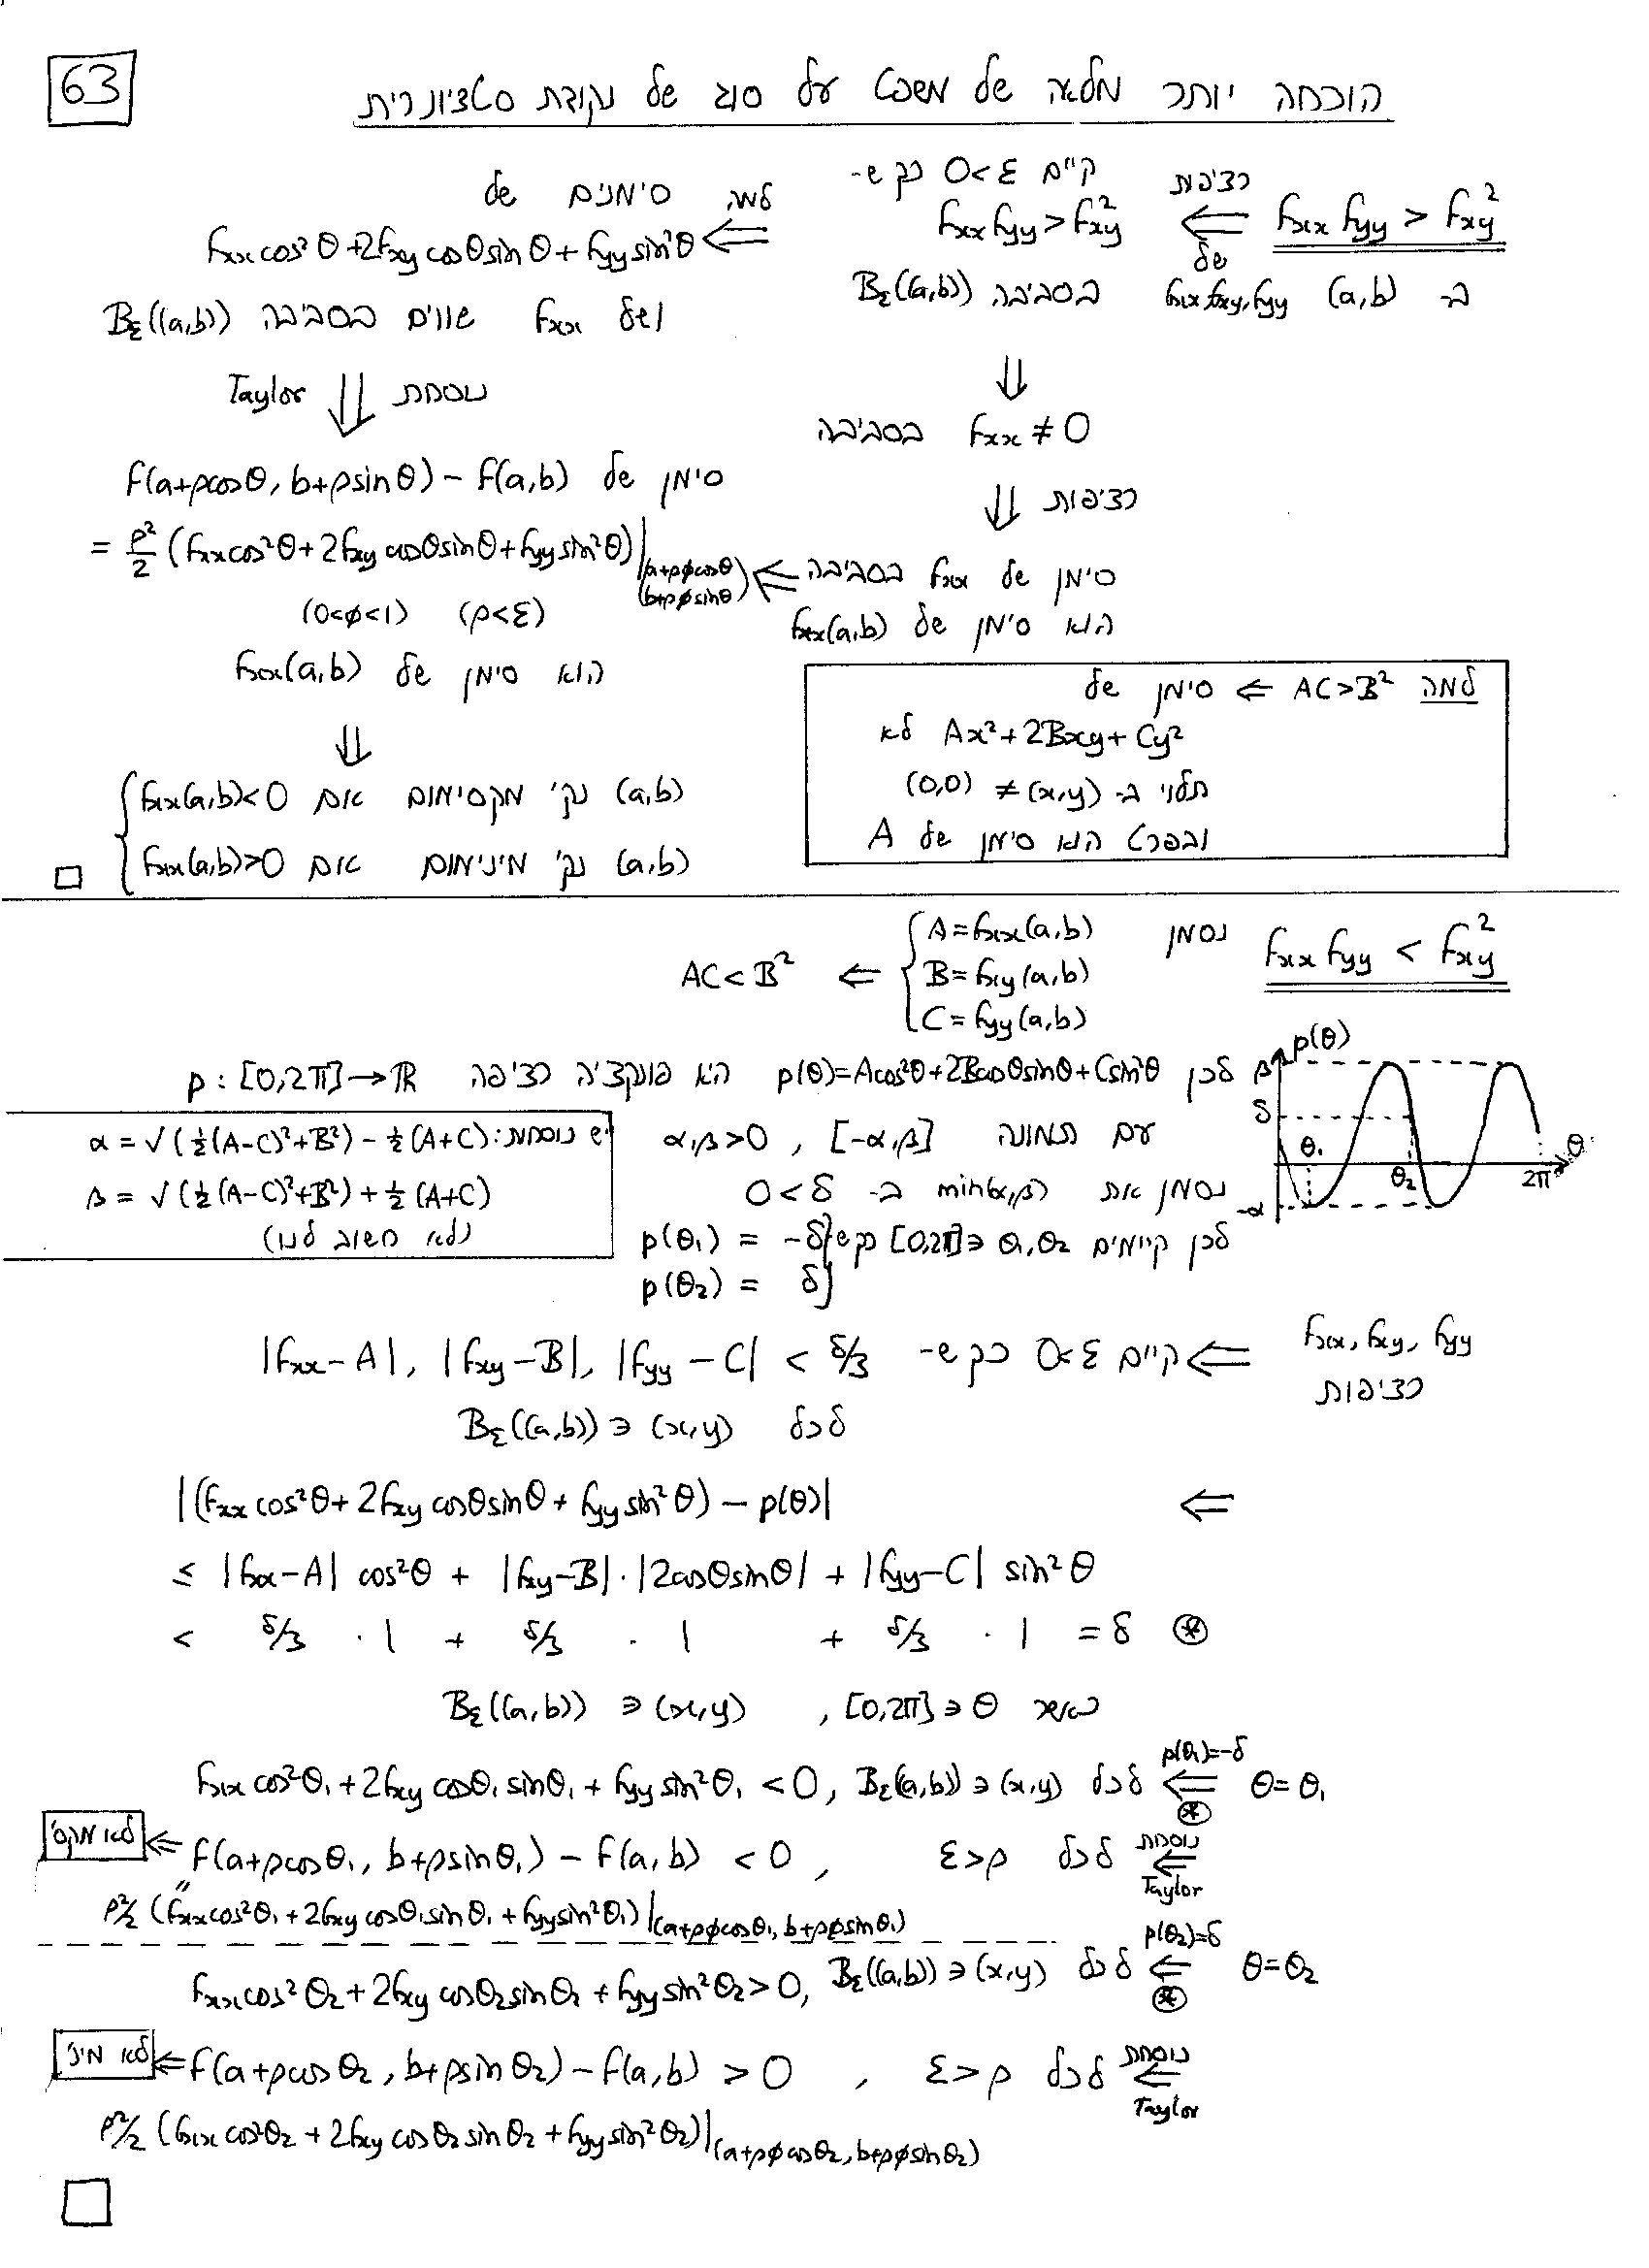 63
הוכחה יותר מלאה של משפט על סוג של נקודת סטציונרית
fxx fyy > fxy²
ב- (a,b)
רציפות ⇐ של fxx, fxy, fyy
קיים 0<ε כך ש-
fxx fyy > fxy²
בסביבה Bε((a,b))
⇓
fxx ≠ 0 בסביבה
⇓ רציפות
סימן של fxx בסביבה
הוא סימן של fxx(a,b)
⇐ למה
סימנים של
fxx cos²θ + 2fxy cosθ sinθ + fyy sin²θ
ושל fxx שווים בסביבה Bε((a,b))
נוסחת ⇓ Taylor
סימן של f(a+ρcosθ, b+ρsinθ) − f(a,b)
= ρ²/2 (fxx cos²θ + 2fxy cosθ sinθ + fyy sin²θ)|(a+ρφcosθ, b+ρφsinθ)
(0<φ<1) (ρ<ε)
הוא סימן של fxx(a,b)
⇓
(a,b) נק' מקסימום אם fxx(a,b)<0
(a,b) נק' מינימום אם fxx(a,b)>0
□
למה AC>B² ⇐ סימן של
Ax²+2Bxy+Cy² לא
תלוי ב- (x,y) ≠ (0,0)
ובפרט הוא סימן של A
fxx fyy < fxy²
נסמן
A = fxx(a,b)
B = fxy(a,b)
C = fyy(a,b)
⇐ AC < B²
לכן p(θ)=Acos²θ+2Bcosθsinθ+Csin²θ היא פונקציה רציפה p : [0,2π]→ℝ
עם תמונה [-α,β] , α,β>0
נסמן את min(α,β) ב- 0<δ
לכן קיימים θ₁,θ₂ ∈ [0,2π] כך ש
p(θ₁) = -δ
p(θ₂) = δ
יש נוסחת: α = √(½(A-C)²+B²) − ½(A+C)
β = √(½(A-C)²+B²) + ½(A+C)
(לא חשוב לנו)
p(θ)
β
δ
-α
θ₁
θ₂
2π
θ
fxx, fxy, fyy
רציפות
⇐ קיים 0<ε כך ש- |fxx − A|, |fxy − B|, |fyy − C| < δ/3
לכל (x,y) ∈ Bε((a,b))
⇐ |(fxx cos²θ + 2fxy cosθ sinθ + fyy sin²θ) − p(θ)|
≤ |fxx−A| cos²θ + |fxy−B|·|2cosθsinθ| + |fyy−C| sin²θ
< δ/3 · 1 + δ/3 · 1 + δ/3 · 1 = δ ⊛
כאשר θ ∈ [0,2π] , (x,y) ∈ Bε((a,b))
θ=θ₁ p(θ₁)=-δ ⇐ ⊛ לכל (x,y) ∈ Bε((a,b)) , fxx cos²θ₁ + 2fxy cosθ₁ sinθ₁ + fyy sin²θ₁ < 0
נוסחת ⇐ Taylor לכל ε>ρ , f(a+ρcosθ₁, b+ρsinθ₁) − f(a,b) < 0 ⇐ לא מינ'
ρ²/2 (fxx cos²θ₁ + 2fxy cosθ₁ sinθ₁ + fyy sin²θ₁)|(a+ρφcosθ₁, b+ρφsinθ₁)
θ=θ₂ p(θ₂)=δ ⇐ ⊛ לכל (x,y) ∈ Bε((a,b)) , fxx cos²θ₂ + 2fxy cosθ₂ sinθ₂ + fyy sin²θ₂ > 0
נוסחת ⇐ Taylor לכל ε>ρ , f(a+ρcosθ₂, b+ρsinθ₂) − f(a,b) > 0 ⇐
ρ²/2 (fxx cos²θ₂ + 2fxy cosθ₂ sinθ₂ + fyy sin²θ₂)|(a+ρφcosθ₂, b+ρφsinθ₂)
□